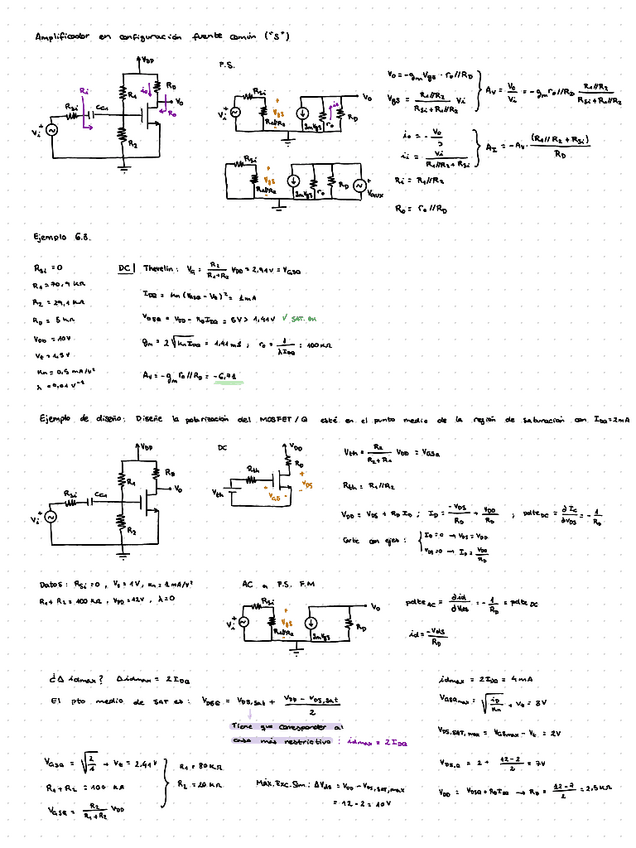 Amplificador en configuración fuente común ("S")
P.S.
VDD
Ri
Rsi
CC1
R1
io
RD
Vo
Ro
Vi
R2
Rsi
Vi
R1//R2
Vgs
gmVgs
ro
io
RD
Vo
Vo = -gm Vgs · ro//RD
Vgs = R1//R2 / Rsi + R1//R2 Vi
Av = Vo / Vi = -gm ro//RD R1//R2 / Rsi + R1//R2
ii = Vi / R1//R2 + Rsi
AI = -Av · (R1//R2 + Rsi) / RD
Ri = R1//R2
Ro = ro//RD
Rsi
R1//R2
Vgs
gmVgs
ro
RD
Vaux
Ejemplo 6.3.
Rsi = 0
R1 = 70,9 KΩ
R2 = 29,1 KΩ
RD = 5 KΩ
VDD = 10V
Vt = 1,5V
Kn = 0,5 mA/V²
λ = 0,01 V⁻¹
DC| Thevelin: VG = R2 / R1+R2 VDD = 2,91V = VGSQ
IDQ = Kn (VGSQ - Vt)² = 1mA
VDSQ = VDD - RD IDQ = 5V > 1,41V ✓ SAT. OK
gm = 2 √Kn IDQ = 1,41 mS ; ro = 1 / λIDQ = 100KΩ
Av = -gm ro//RD = -6,71
Ejemplo de diseño: Diseñe la polarización del MOSFET / Q esté en el punto medio de la región de saturación con IDQ = 2mA
VDD
Rsi
CC1
R1
RD
Vo
Vi
R2
DC
VDD
RD
Rth
Vth
VGS
VDS
Vth = R2 / R2+R1 VDD = VGSQ
Rth = R1//R2
VDD = VDS + RD ID ; ID = -VDS / RD + VDD / RD ; pdteDC = ∂IC / ∂VDS = - 1 / RD
Corte con ejes: { ID = 0 → VDS = VDD
VDS = 0 → ID = VDD / RD
Datos: Rsi = 0 , Vt = 1V , Kn = 1 mA/V²
R1 + R2 = 100 KΩ , VDD = 12V , λ = 0
AC a P.S. F.M
Rsi
Vi
R1//R2
Vgs
gmVgs
RD
Vo
pdteAC = ∂id / ∂Vds = - 1 / RD = pdte DC
id = -Vds / RD
¿Δ idmax? Δidmax = 2IDQ
El pto medio de SAT es: VDSQ = VDS,sat + VDD - VDS,sat / 2
Tiene que corresponder al
caso más restrictivo: idmax = 2IDQ
idmax = 2IDQ = 4mA
VGSmax = √ iD / Kn + Vt = 3V
VDS,SAT,max = VGSmax - Vt = 2V
VDS,Q = 2 + 12-2 / 2 = 7V
VDD = VDSQ + RD IDQ → RD = 12-7 / 2 = 2,5KΩ
VGSQ = √ 2 / 1 + Vt = 2.41V
R1 + R2 = 100 KΩ
VGSQ = R2 / R1 + R2 VDD
R1 = 80KΩ
R2 = 20KΩ
Máx. Exc. Sim: ΔVds = VDD - VDS,SAT,max
= 12 - 2 = 10V